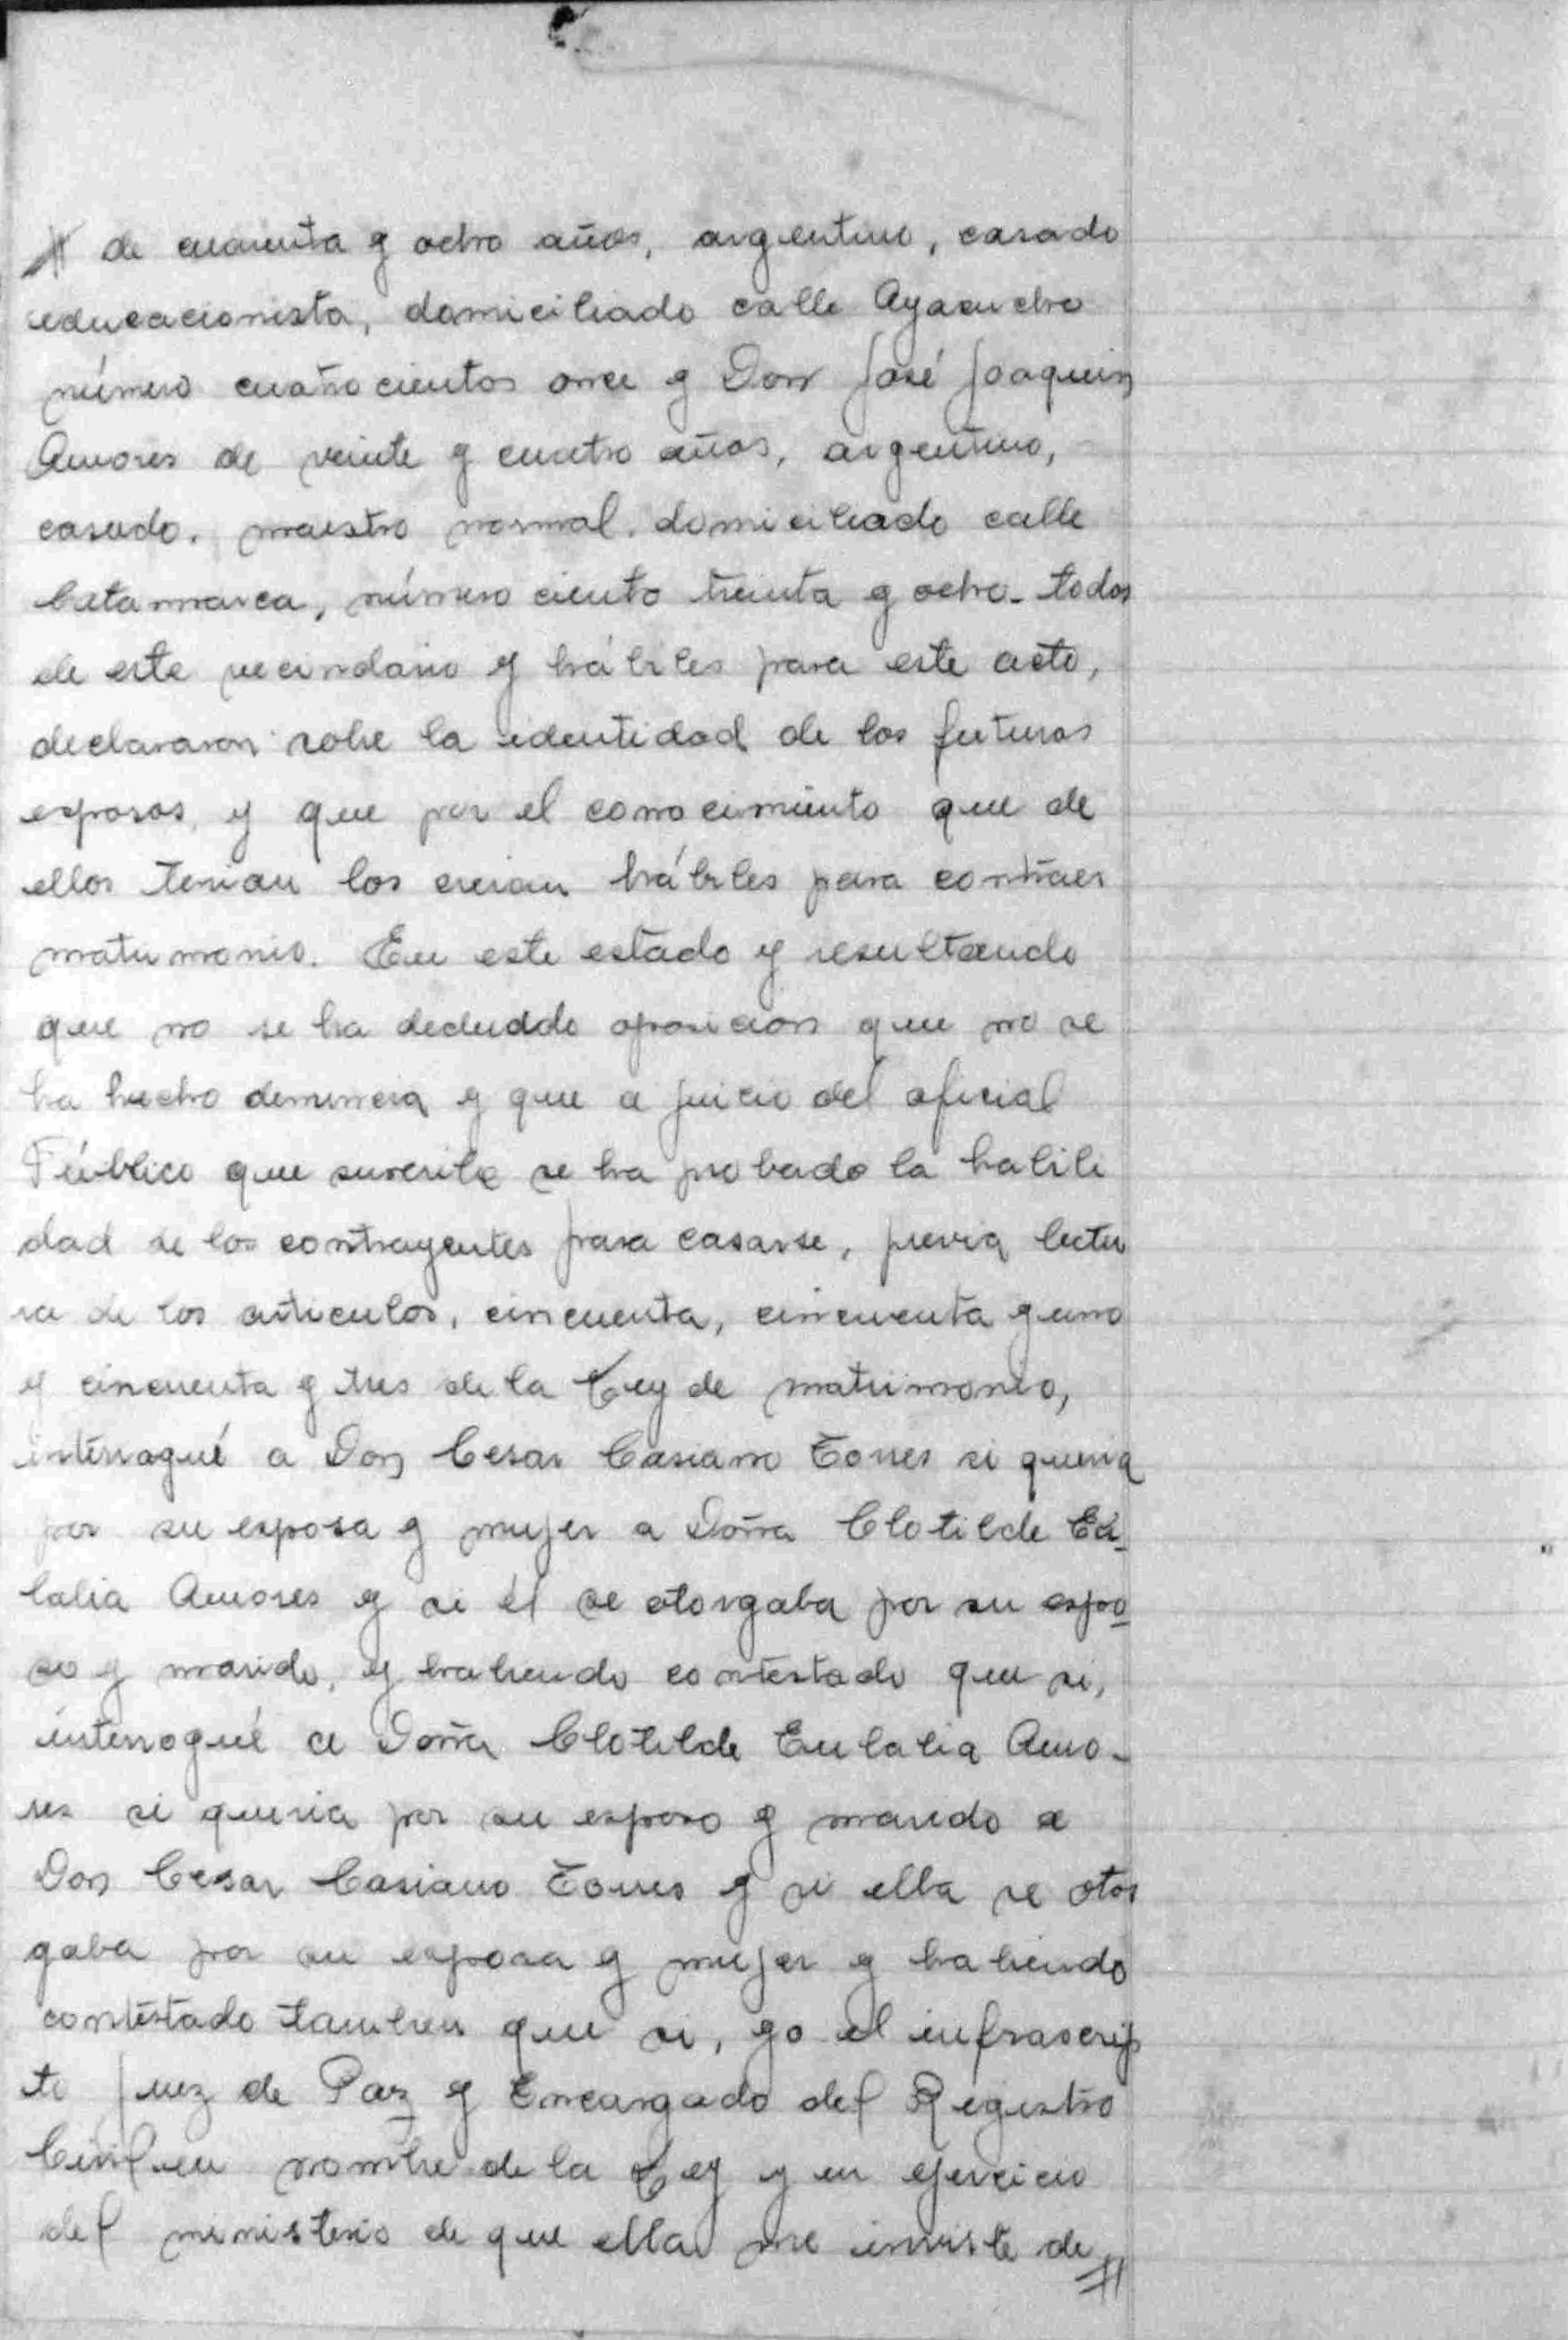 # de cuarenta y ocho años, argentino, casado
educacionista, domiciliado calle Ayacucho
número cuatrocientos once y Don José Joaquin
Amores de veinte y cuatro años, argentino,
casado. maestro normal. domiciliado calle
Catamarca, número ciento treinta y ocho - todos
de este vecindario y hábiles para este acto,
declararon sobre la identidad de los futuros
esposos, y que por el conocimiento que de
ellos tenian los creian hábiles para contraer
matrimonio. En este estado y resultando
que no se ha deduddo oposicion que no se
ha hecho denuncia y que a juicio del oficial
Público que suscribe se ha probado la habili
dad de los contrayentes para casarse, previa lectu
ra de los articulos, cincuenta, cincuenta y uno
y cincuenta y tres de la Ley de matrimonio,
interrogué a Don Cesar Casiano Torres si queria
por su esposa y mujer a Doña Clotilde Eu-
lalia Amores y si él se otorgaba por su espo-
so y marido, y habiendo contestado que si,
interrogué a Doña Clotilde Eulalia Amo-
res si queria por su esposo y marido a
Don Cesar Casiano Torres y si ella se otor
gaba por su esposa y mujer y habiendo
contestado tambien que si, yo el infrascrip
to Juez de Paz y Encargado del Registro
Civil en nombre de la Ley y en ejercicio
del ministerio de que ella me inviste de #